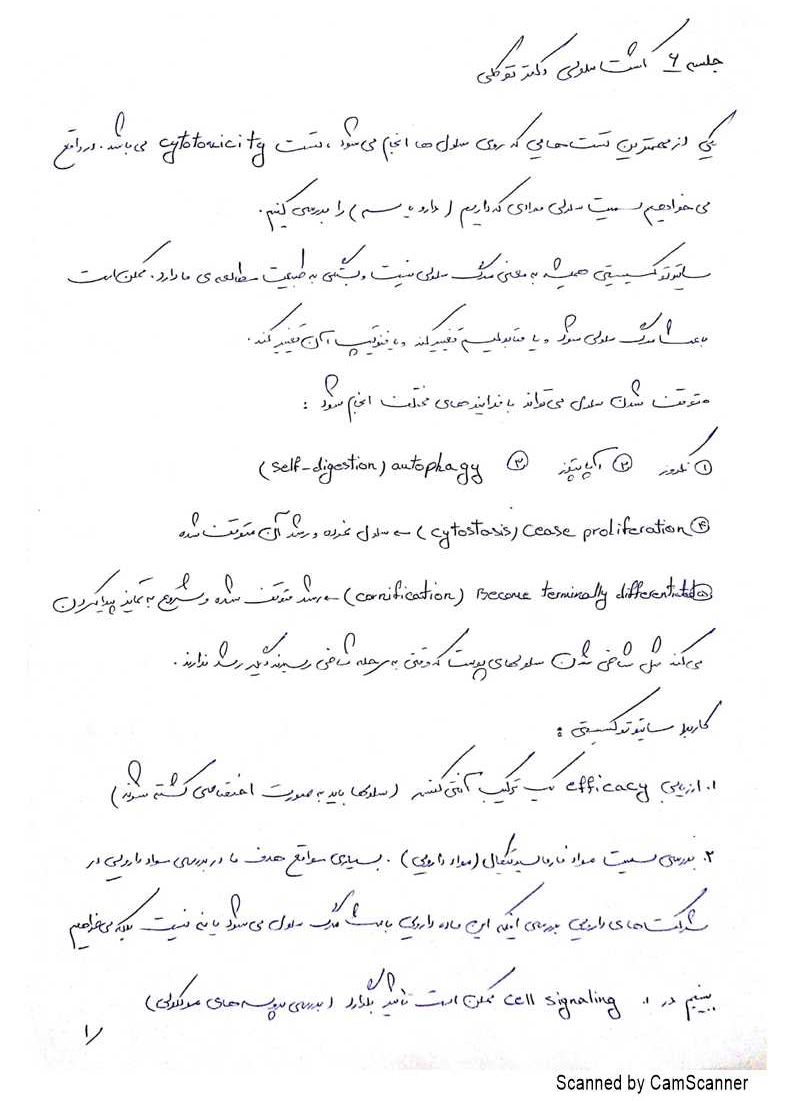 جلسه ۶ کشت سلولی دکتر توکلی
یکی از مهمترین تست هایی که روی سلول ها انجام می شود، تست cytotoxicity می باشد. در واقع
می خواهیم سمیت سلولی موادی که داریم (دارو یا سم) را بررسی کنیم.
سایتوتوکسیسیتی همیشه به معنی مرگ سلولی نیست و بستگی به طبیعت مطالعه ی ما دارد. ممکن است
باعث مرگ سلولی شود و یا متابولیسم تغییر کند و یا فنوتیپ آن تغییر کند.
متوقف شدن سلول می تواند با فرایندهای مختلف انجام شود :
① نکروز ② آپاپتوز ③ autophagy (self-digestion)
④ cease proliferation (cytostasis) ← سلول نمرده و رشد آن متوقف شده
⑤ Become terminally differentiated (cornification) ← رشد متوقف شده و شروع به تمایز پیدا کردن
می کند مثل شاخی شدن سلولهای پوست که وقتی به مرحله شاخی رسیدند دیگر رشد ندارند.
کاربرد سایتوتوکسیستی :
۱. ارزیابی efficacy یک ترکیب آنتی کنسر (سلولها باید به صورت اختصاصی کشته شوند)
۲. بررسی سمیت مواد فارماسیوتیکال (مواد دارویی). بسیاری مواقع هدف ما در بررسی مواد دارویی در
شرکت های دارویی بررسی اینکه این ماده دارویی باعث مرگ سلول می شود یا نه نیست بلکه می خواهیم
ببینیم در cell signaling ممکن است تاثیر بگذارد (بررسی پروسه های مولکولی)
۱
Scanned by CamScanner